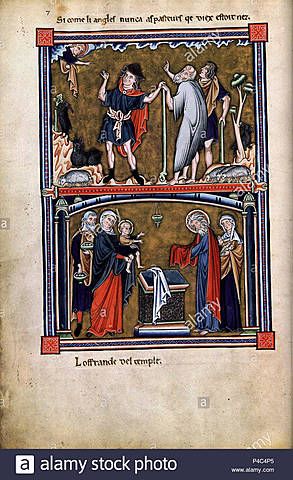 7
Si come li angles nunca as pasteurs qe diex estoit nez.
L offrande del temple.
a alamy stock photo
P4C4P5
www.alamy.com